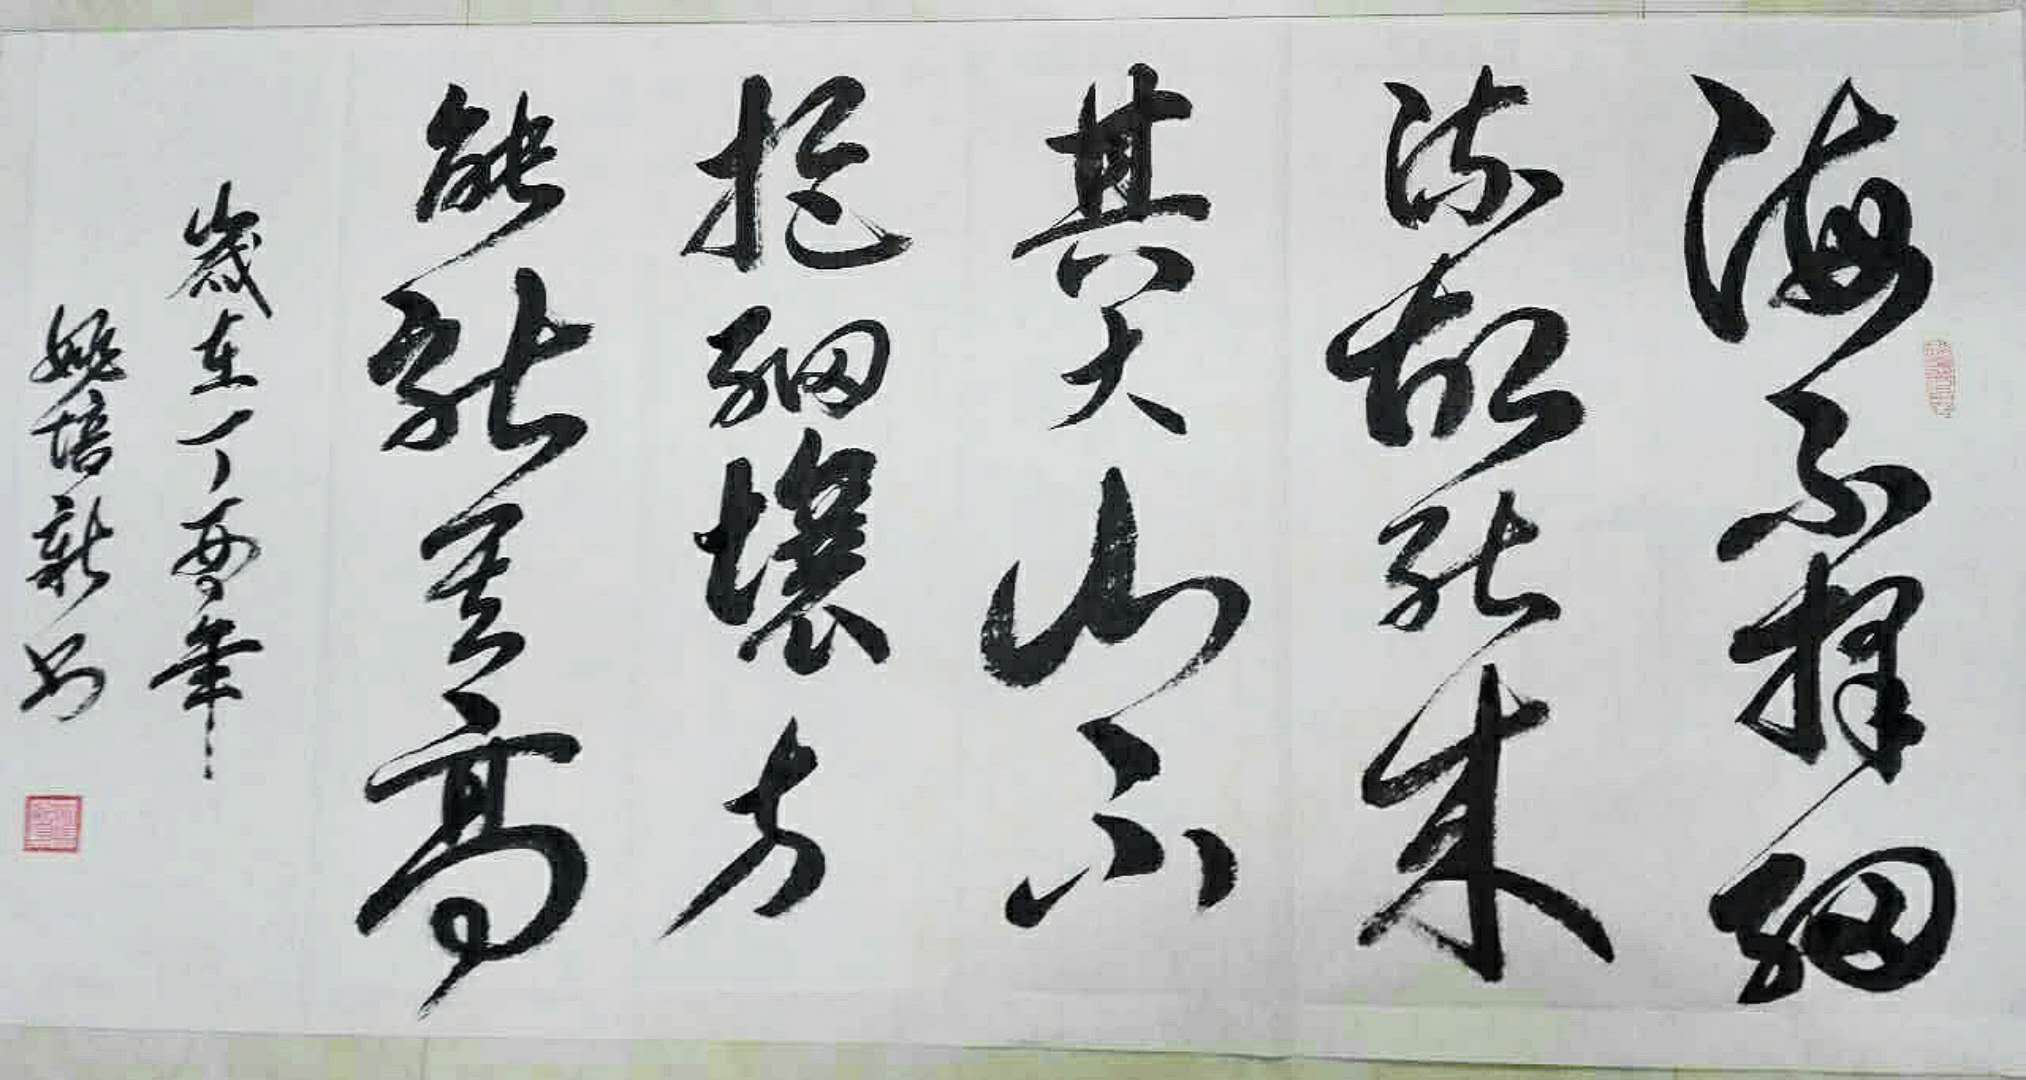 海不择细
流故能成
其大山不
拒细壤方
能就其高
歲在丁酉年
姚培新书